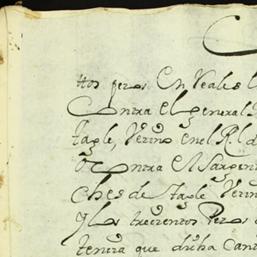 tos pesos En Reales
Contra El general
Tagle, Vezino en el R.l d
o Contra El Sargen
ches de Tagle Vezin
Y los trecientos Pesos
tencia que dicha Can